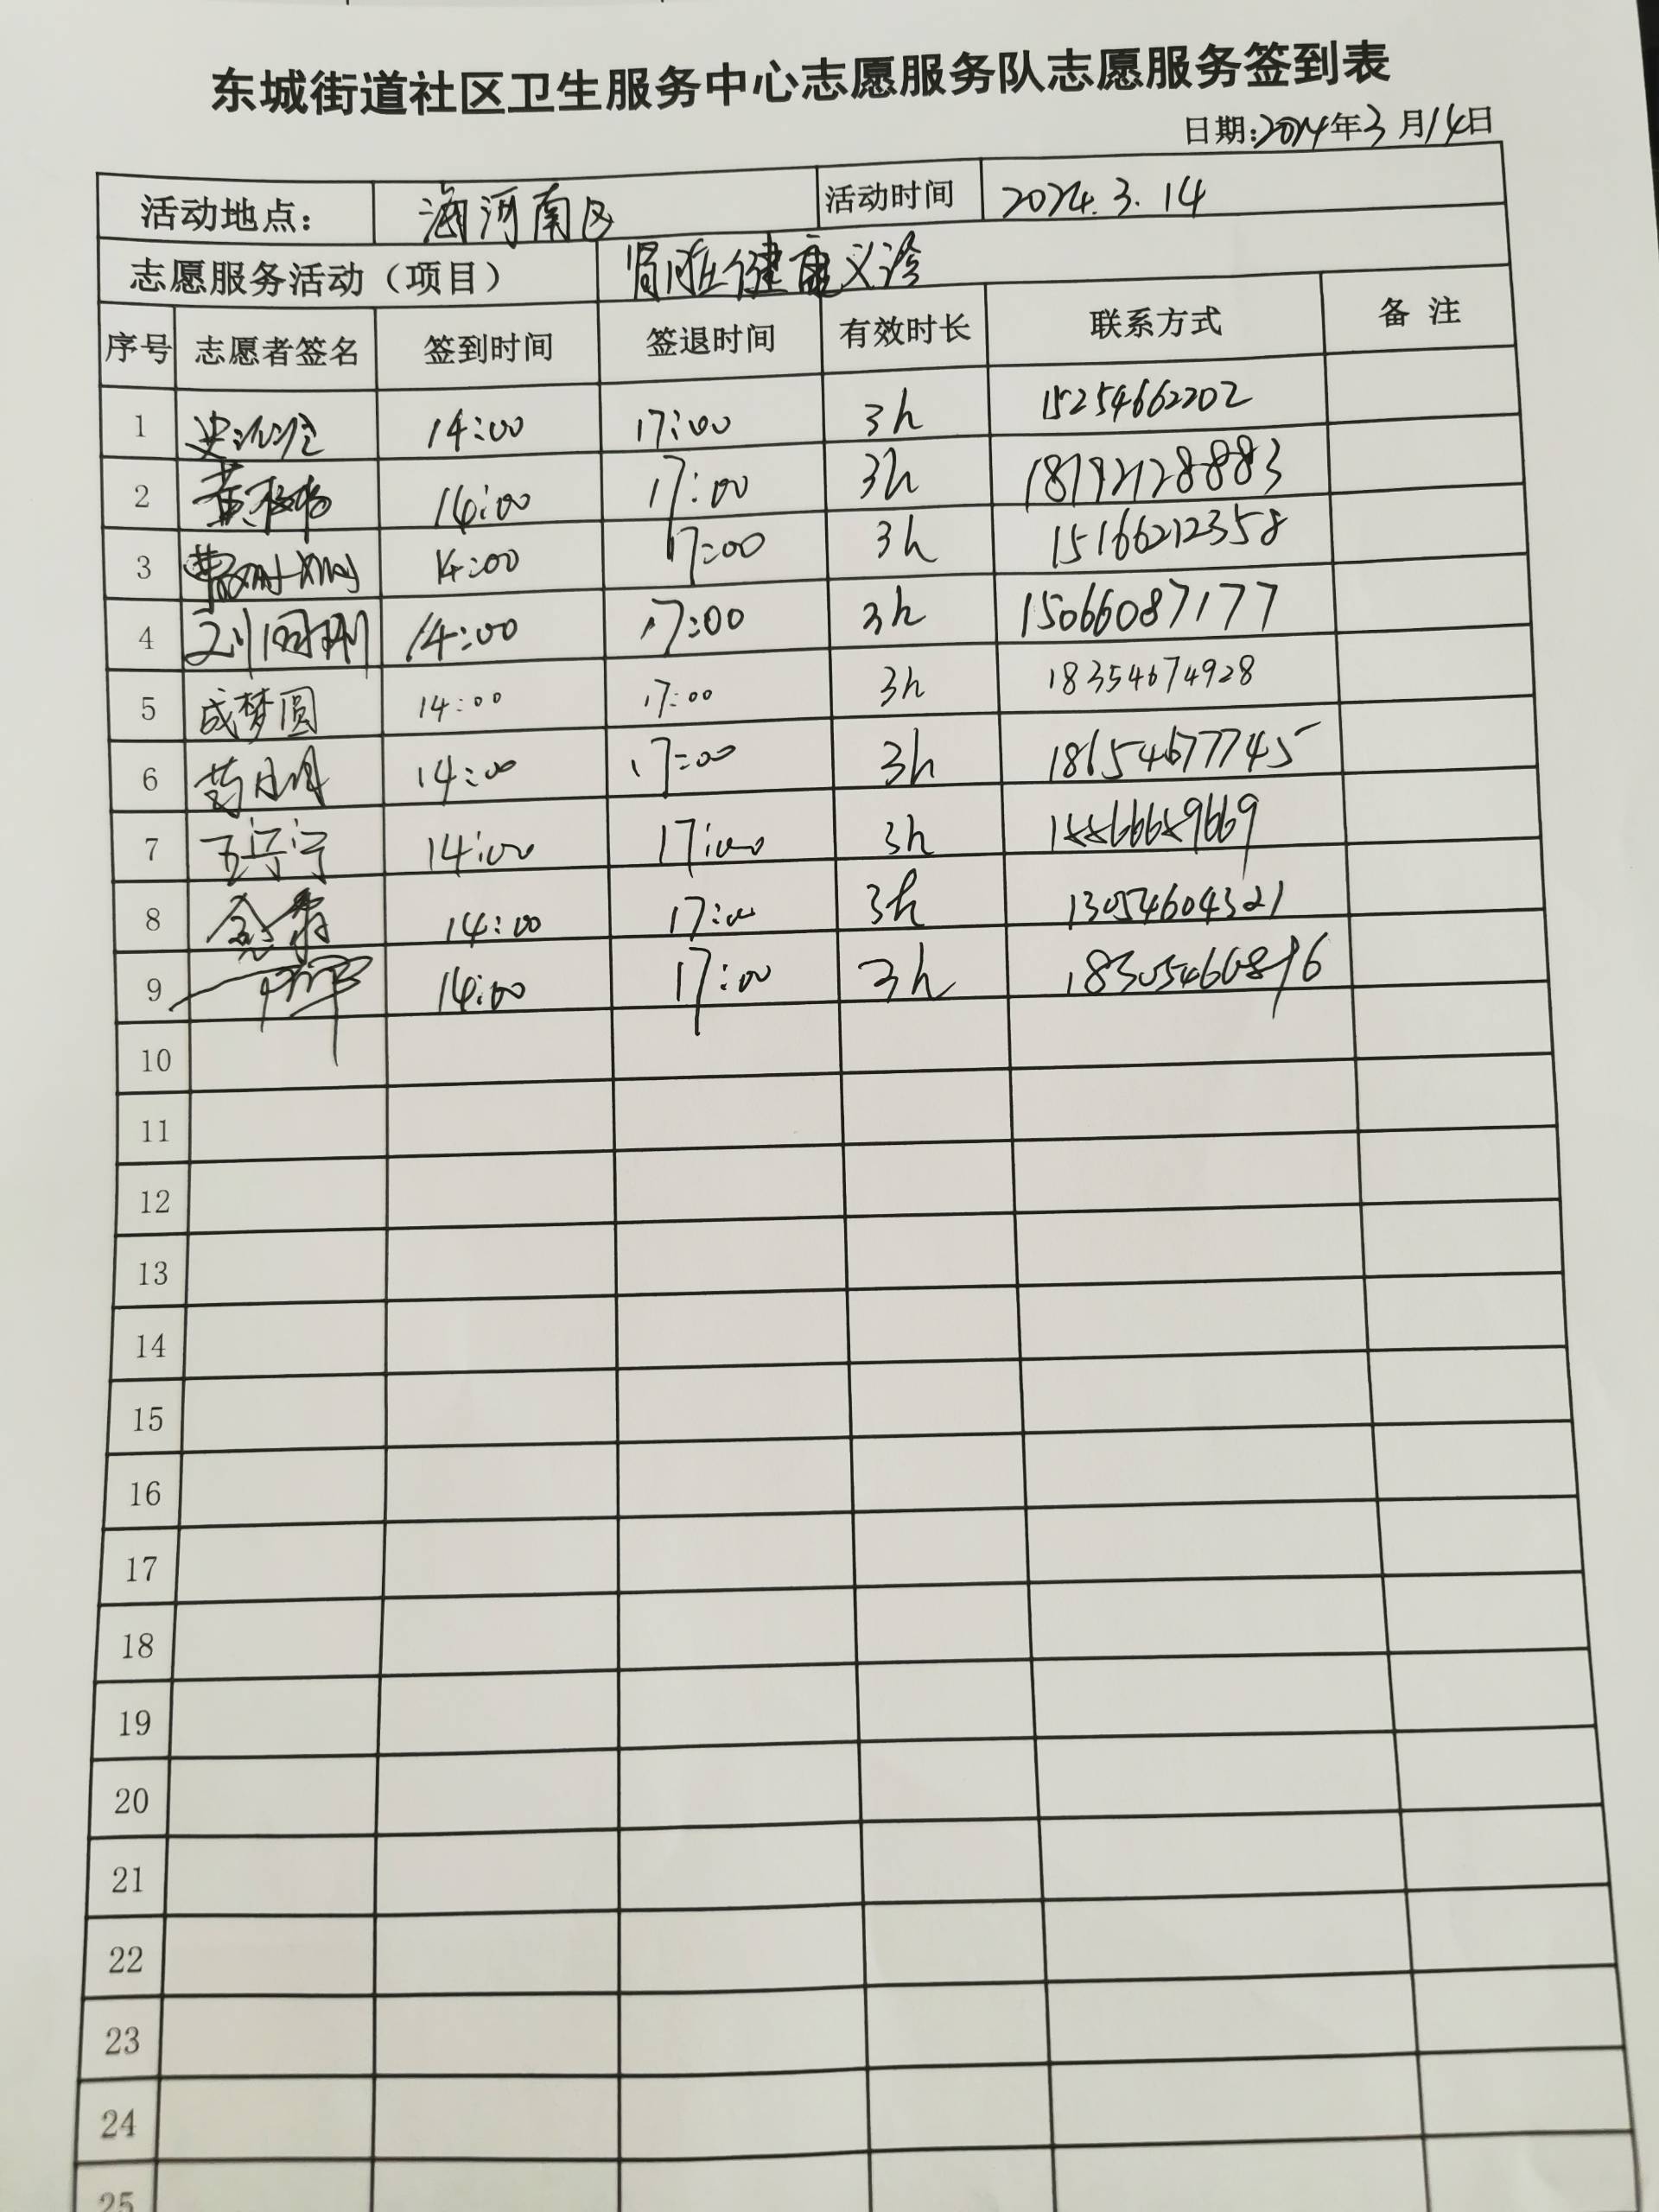 东城街道社区卫生服务中心志愿服务队志愿服务签到表
日期:2024年3月14日
活动地点: 海河南区 活动时间 2024.3.14
志愿服务活动（项目） 肾脏健康义诊
序号 志愿者签名 签到时间 签退时间 有效时长 联系方式 备注
1 14:00 17:00 3h 15254662202
2 14:00 17:00 3h 18792128883
3 14:00 17:00 3h 15166212358
4 14:00 17:00 3h 15066087177
5 成梦圆 14:00 17:00 3h 18354674928
6 14:00 17:00 3h 18654677745
7 14:00 17:00 3h
8 14:00 17:00 3h 13054604321
9 14:00 17:00 3h
10
11
12
13
14
15
16
17
18
19
20
21
22
23
24
25